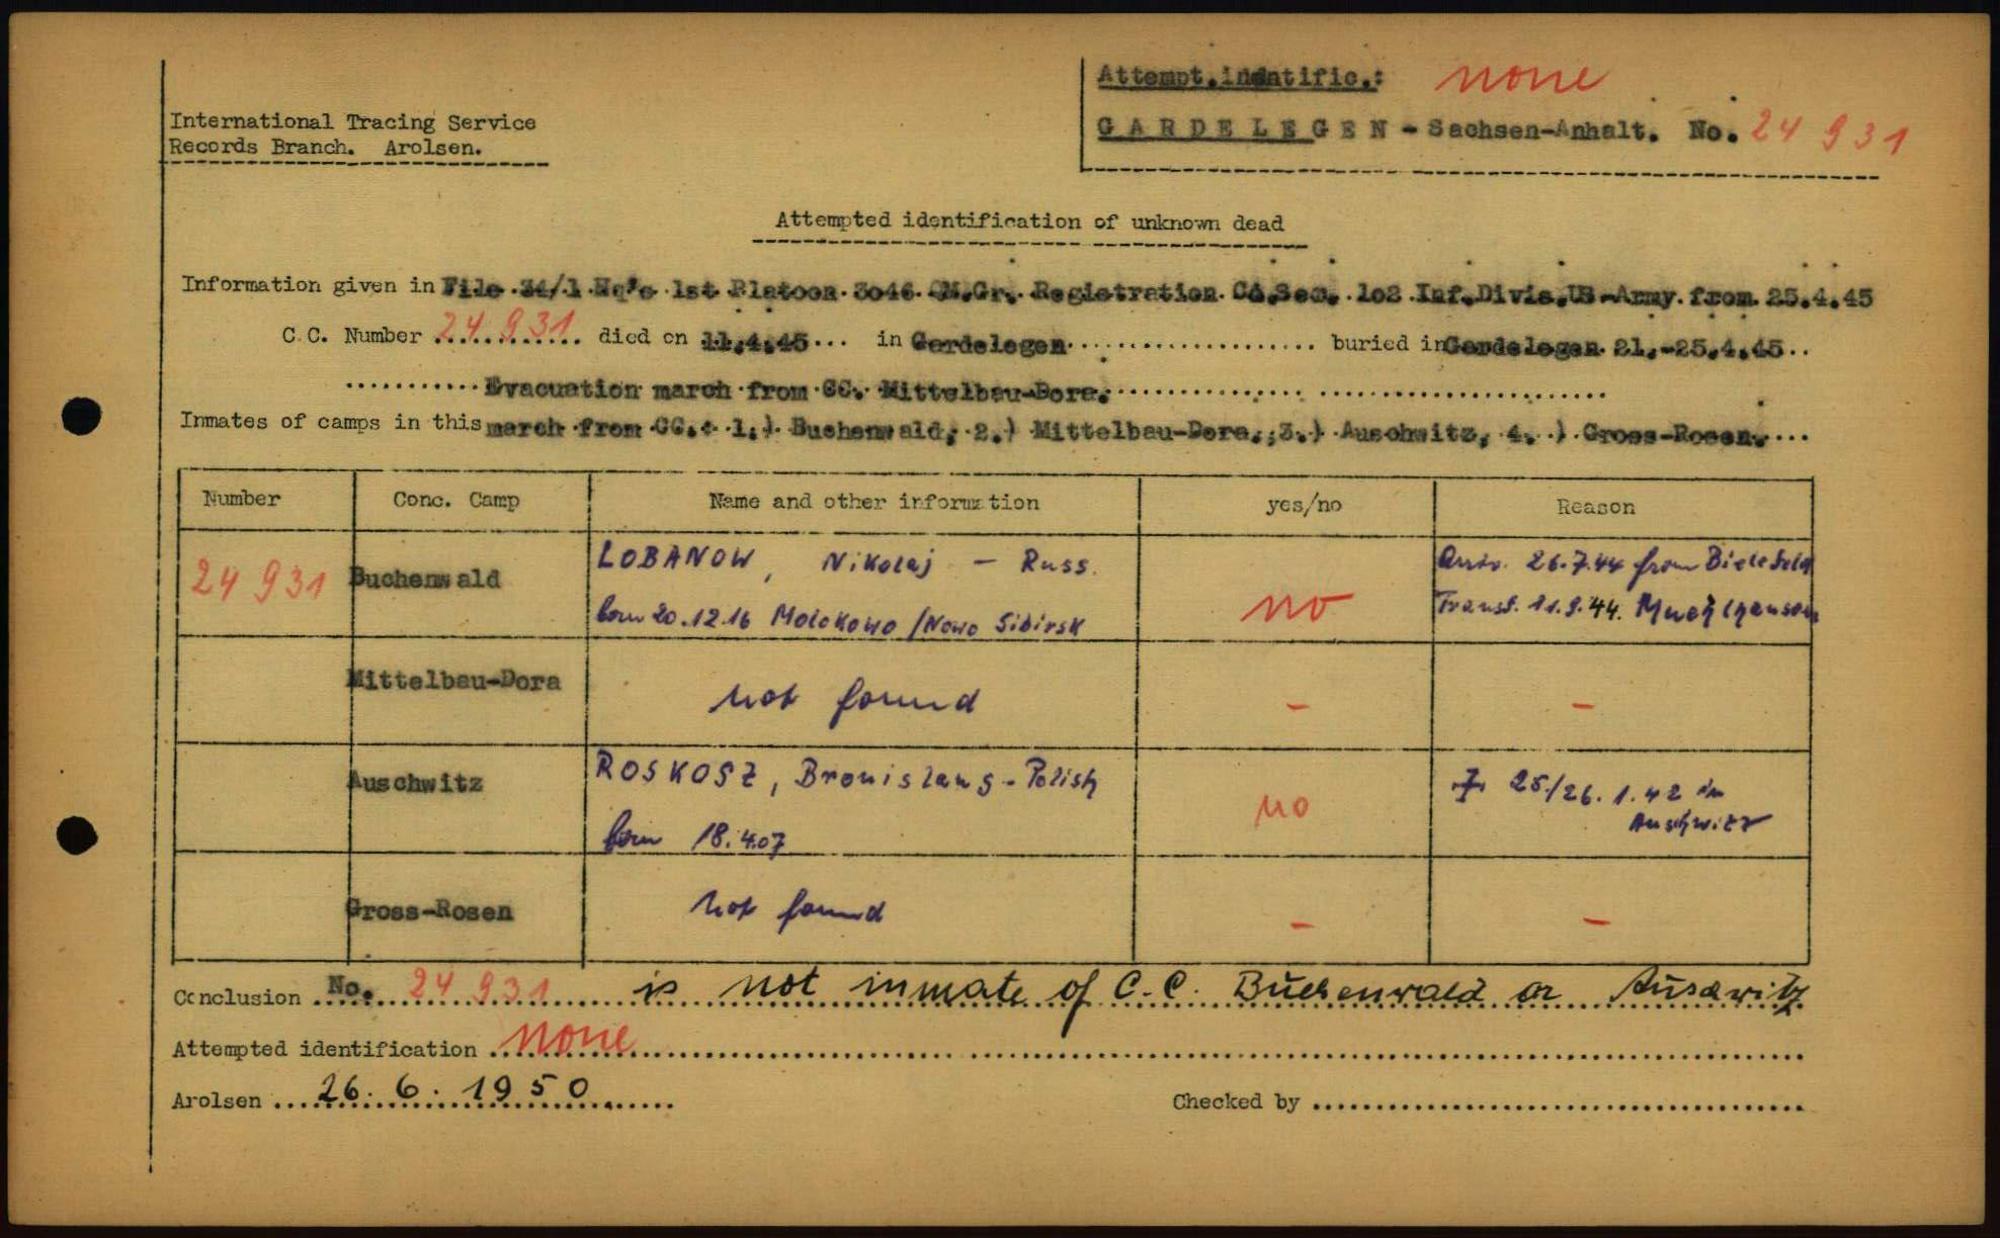 Attempt.indntific.: none
International Tracing Service
Records Branch. Arolsen.
GARDELEGEN - Sachsen-Anhalt. No. 24 931
Attempted identification of unknown dead
Information given in File 34/1 Hq's 1st Platoon 3046 QM.Gr. Registration Co.Sec. 102 Inf.Divis.US-Army from 25.4.45
C.C. Number 24 931 died on 11.4.45 in Gardelegen buried in Gardelegen 21.-25.4.45
Evacuation march from CC. Mittelbau-Dora.
Inmates of camps in this march from CC.: 1.) Buchenwald, 2.) Mittelbau-Dora, 3.) Auschwitz, 4.) Gross-Rosen.
Number Conc. Camp Name and other information yes/no Reason
24 931 Buchenwald LOBANOW, Nikolaj - Russ. no Arriv. 26.7.44 from Bielefeld
born 20.12.16 Molokowo/Nowo Sibirsk Transf. 11.9.44.
Mittelbau-Dora not found - -
Auschwitz ROSKOSZ, Bronislaus - Polish no 25./26.1.42 in
born 18.4.07 Auschwitz
Gross-Rosen not found - -
Conclusion No. 24 931 is not inmate of C.C. Buchenwald or Auschwitz
Attempted identification none
Arolsen 26. 6. 1950 Checked by